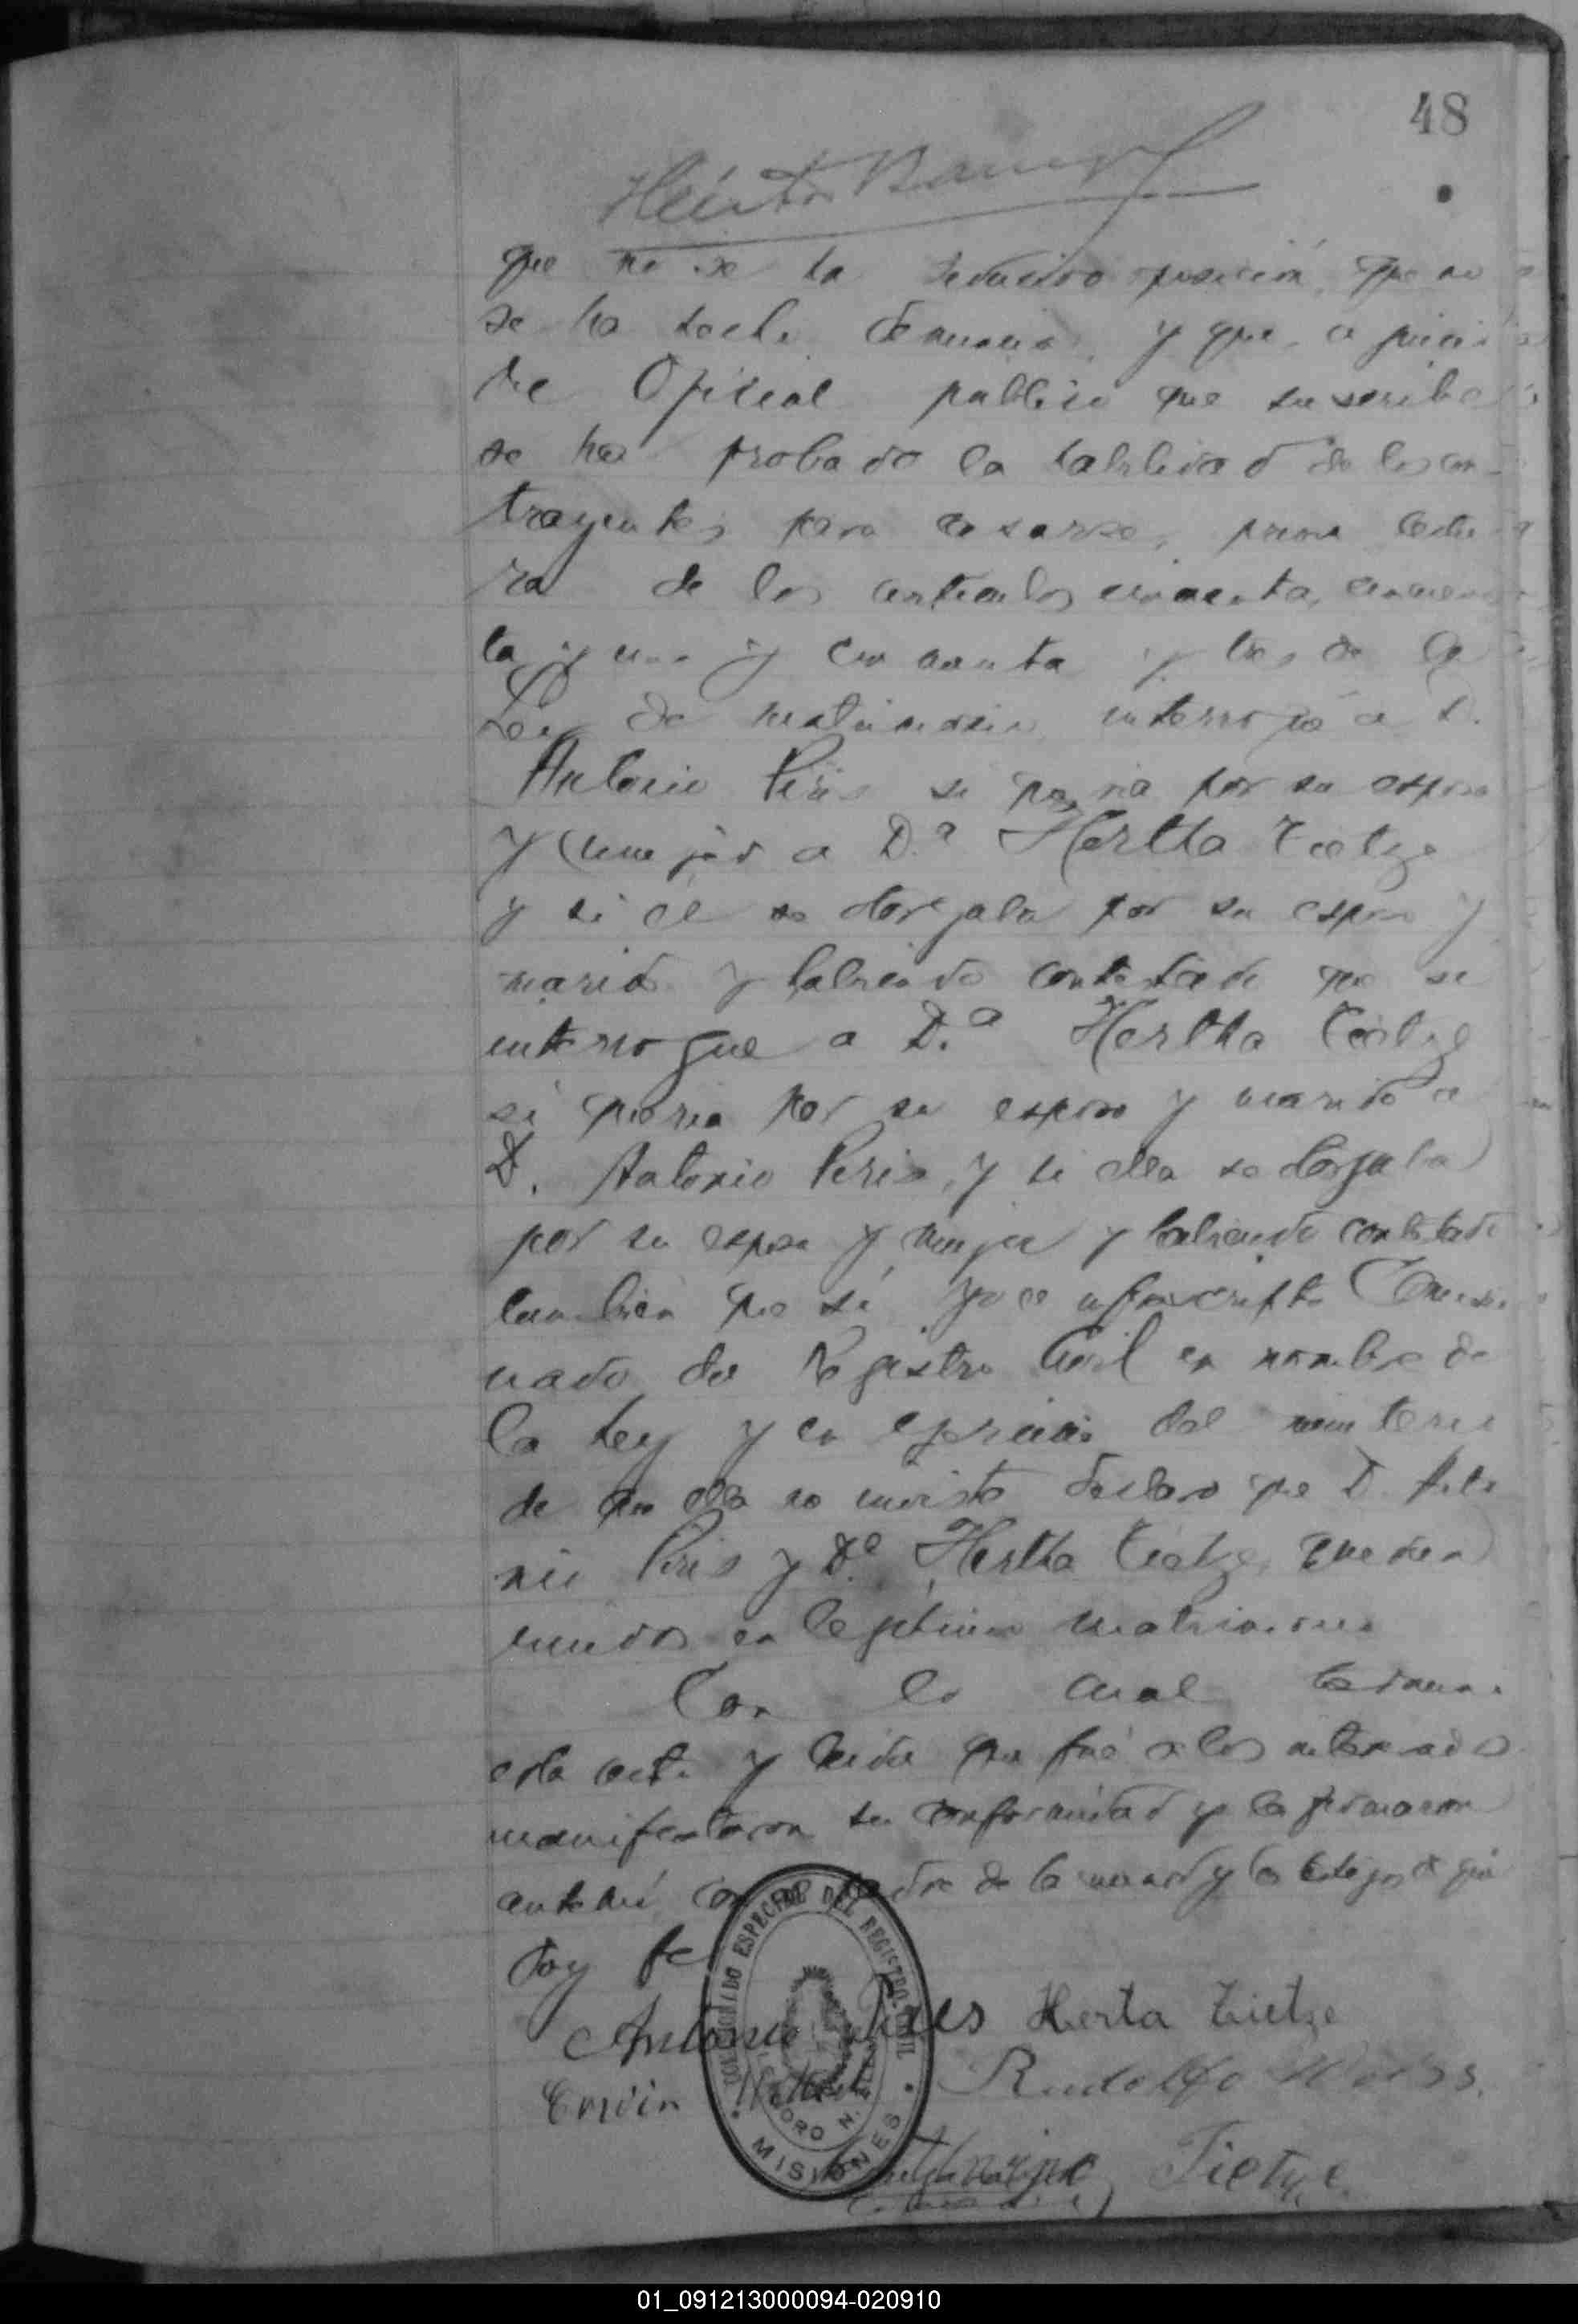 48
Héctor
que no se ha deducido oposición, que no
se ha hecho denuncia, y que a juicio
de Oficial publico que suscribe
se ha probado la habilidad de los con-
trayentes para casarse, previa lectu
ra de los articulos cincuenta, cincuen
ta y uno y cincuenta y tres de la
Ley de matrimonio, interrogué a D.
Antonio Piris si queria por su esposa
y mujer a D.ª Hertha Tietze
y si él se otorgaba por su esposo y
marido y habiendo contestado que si
interrogue a D.ª Hertha Tietze
si queria por su esposo y marido a
D. Antonio Piris, y si ella se otorgaba
por su esposa y mujer y habiendo contestado
tambien que sí yo el infrascripto Comisio
nado del Registro Civil en nombre de
la Ley y en ejercicio del ministerio
de que ella me inviste declaro que D. Anto
nio Piris y D.ª Hertha Tietze, quedan
unidos en legitimo matrimonio
Con lo cual termina
esta acta y leida que fué a los interesados
manifestaron su conformidad y la firmaron
ante mí, con padre de la menor y los testigos de que
doy fe
Antonio Piris Herta Tietze
Erwin Rudolfo
Tietze
COMISIONADO ESPECIAL DEL REGISTRO CIVIL
LEANDRO N. ALEM
MISIONES
01_091213000094-020910